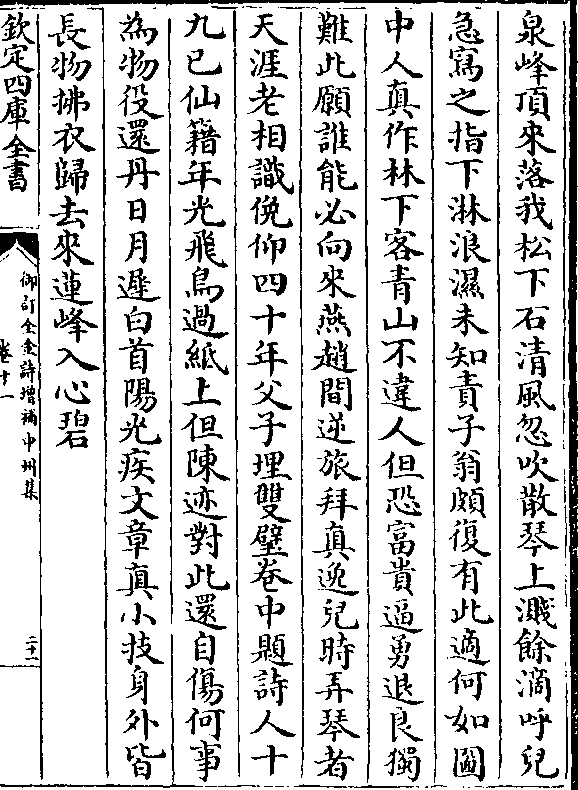 泉峰頂來落我松下石清風忽吹散琴上濺餘滴呼兒
急寫之指下淋浪濕未知責子翁頗復有此適何如圖
中人真作林下客青山不違人但恐富貴逼勇退良獨
難此願誰能必向來燕趙間逆旅拜真逸兒時弄琴者
天涯老相識俛仰四十年父子埋雙璧卷中題詩人十
九已仙籍年光飛鳥過紙上但陳迹對此還自傷何事
為物役還丹日月遲白首陽光疾文章真小技身外皆
長物拂衣歸去來蓮峰入心碧
欽定四庫全書
御訂全金詩增補中州集
卷十一
二十一